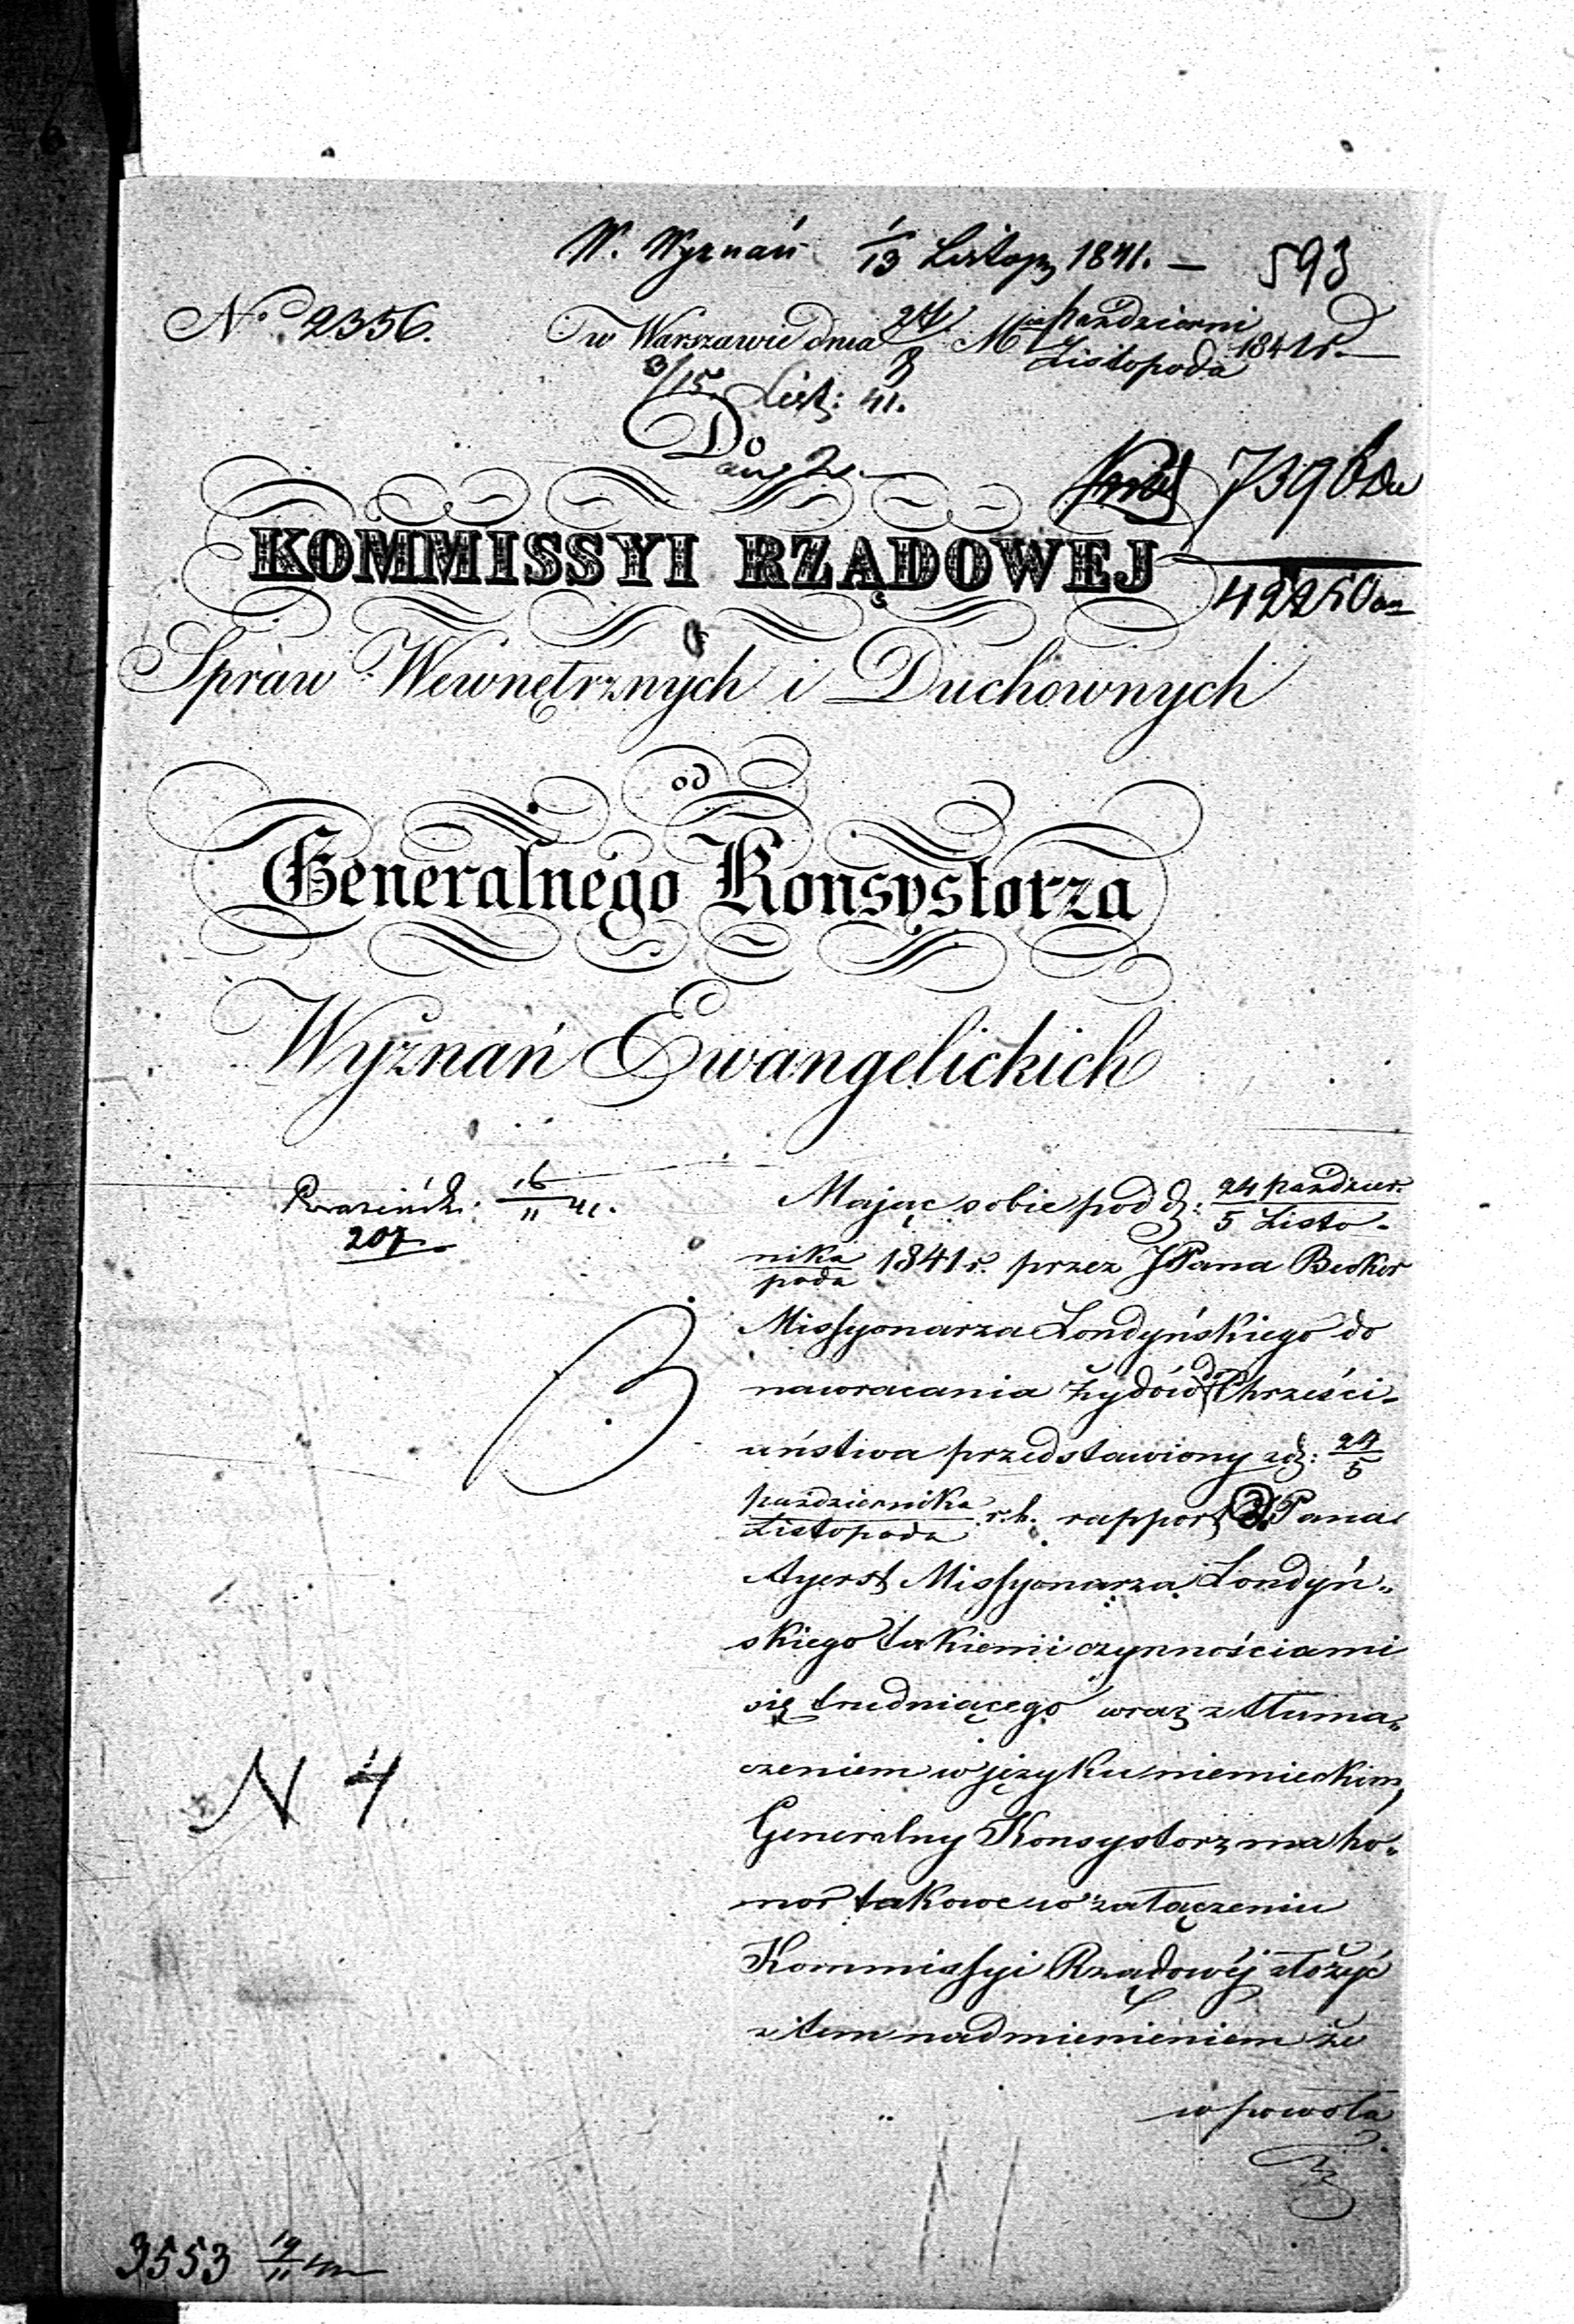 W. Wyznań 1/13 Listop 1841. — 593
No 2356. w Warszawie dnia 27/8 Mca Październi/Listopada 1841 r.
3/15. List: 41.
Do
7396
KOMMISSYI RZĄDOWEJ
42250
Spraw Wewnętrznych i Duchownych
od
Generalnego Konsystorza
Wyznań Ewangelickich
16/11 41.
207
Mając sobie pod d: 24 paździer./5 Listo-
nika/pada 1841 r. przez JPana Becker
Missyonarza Londyńskiego do
nawracania Żydów do Chrześci-
aństwa przedstawiony zd: 24/5
października/Listopada r. b. rapport J. Pana
Ayerst Missyonarza Londyń-
skiego takiemi czynnościami
się trudniącego wraz z tłuma-
czeniem w języku niemieckim,
Generalny Konsystorz ma ho-
nor takowe w załączeniu
Kommissyi Rządowéj złożyć
z tem nadmienieniem że
w powoła
N 4
3553 19/11 41